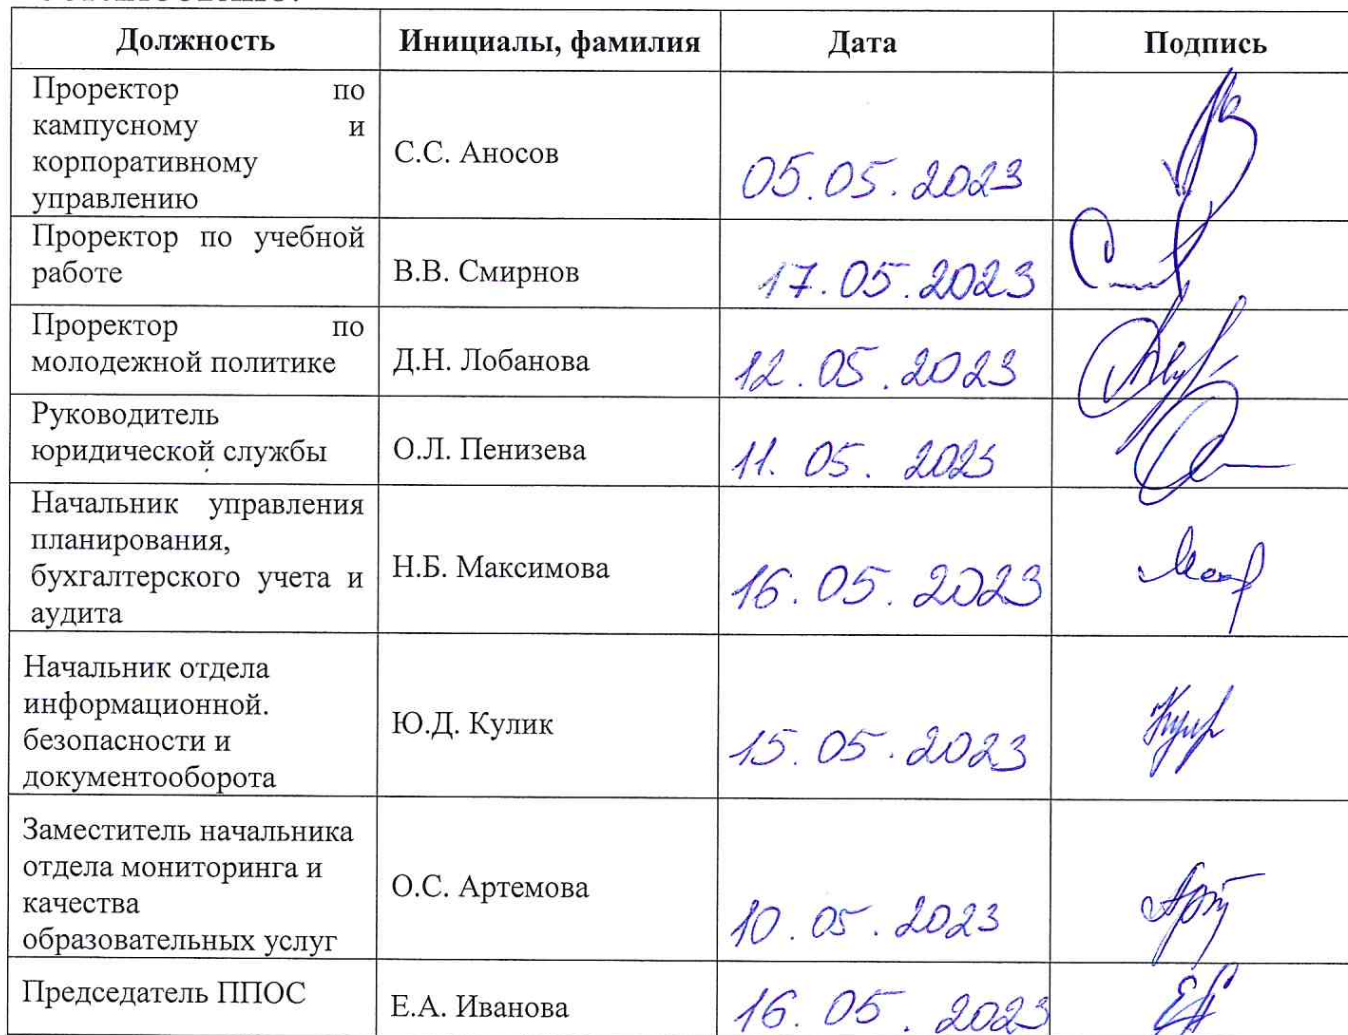 Должность Инициалы, фамилия Дата Подпись
Проректор по
кампусному и
корпоративному
управлению
С.С. Аносов
05.05.2023
Проректор по учебной
работе
В.В. Смирнов
17.05.2023
Проректор по
молодежной политике
Д.Н. Лобанова
12.05.2023
Руководитель
юридической службы
О.Л. Пенизева
11.05.2023
Начальник управления
планирования,
бухгалтерского учета и
аудита
Н.Б. Максимова
16.05.2023
Начальник отдела
информационной.
безопасности и
документооборота
Ю.Д. Кулик
15.05.2023
Заместитель начальника
отдела мониторинга и
качества
образовательных услуг
О.С. Артемова
10.05.2023
Председатель ППОС
Е.А. Иванова
16.05.2023